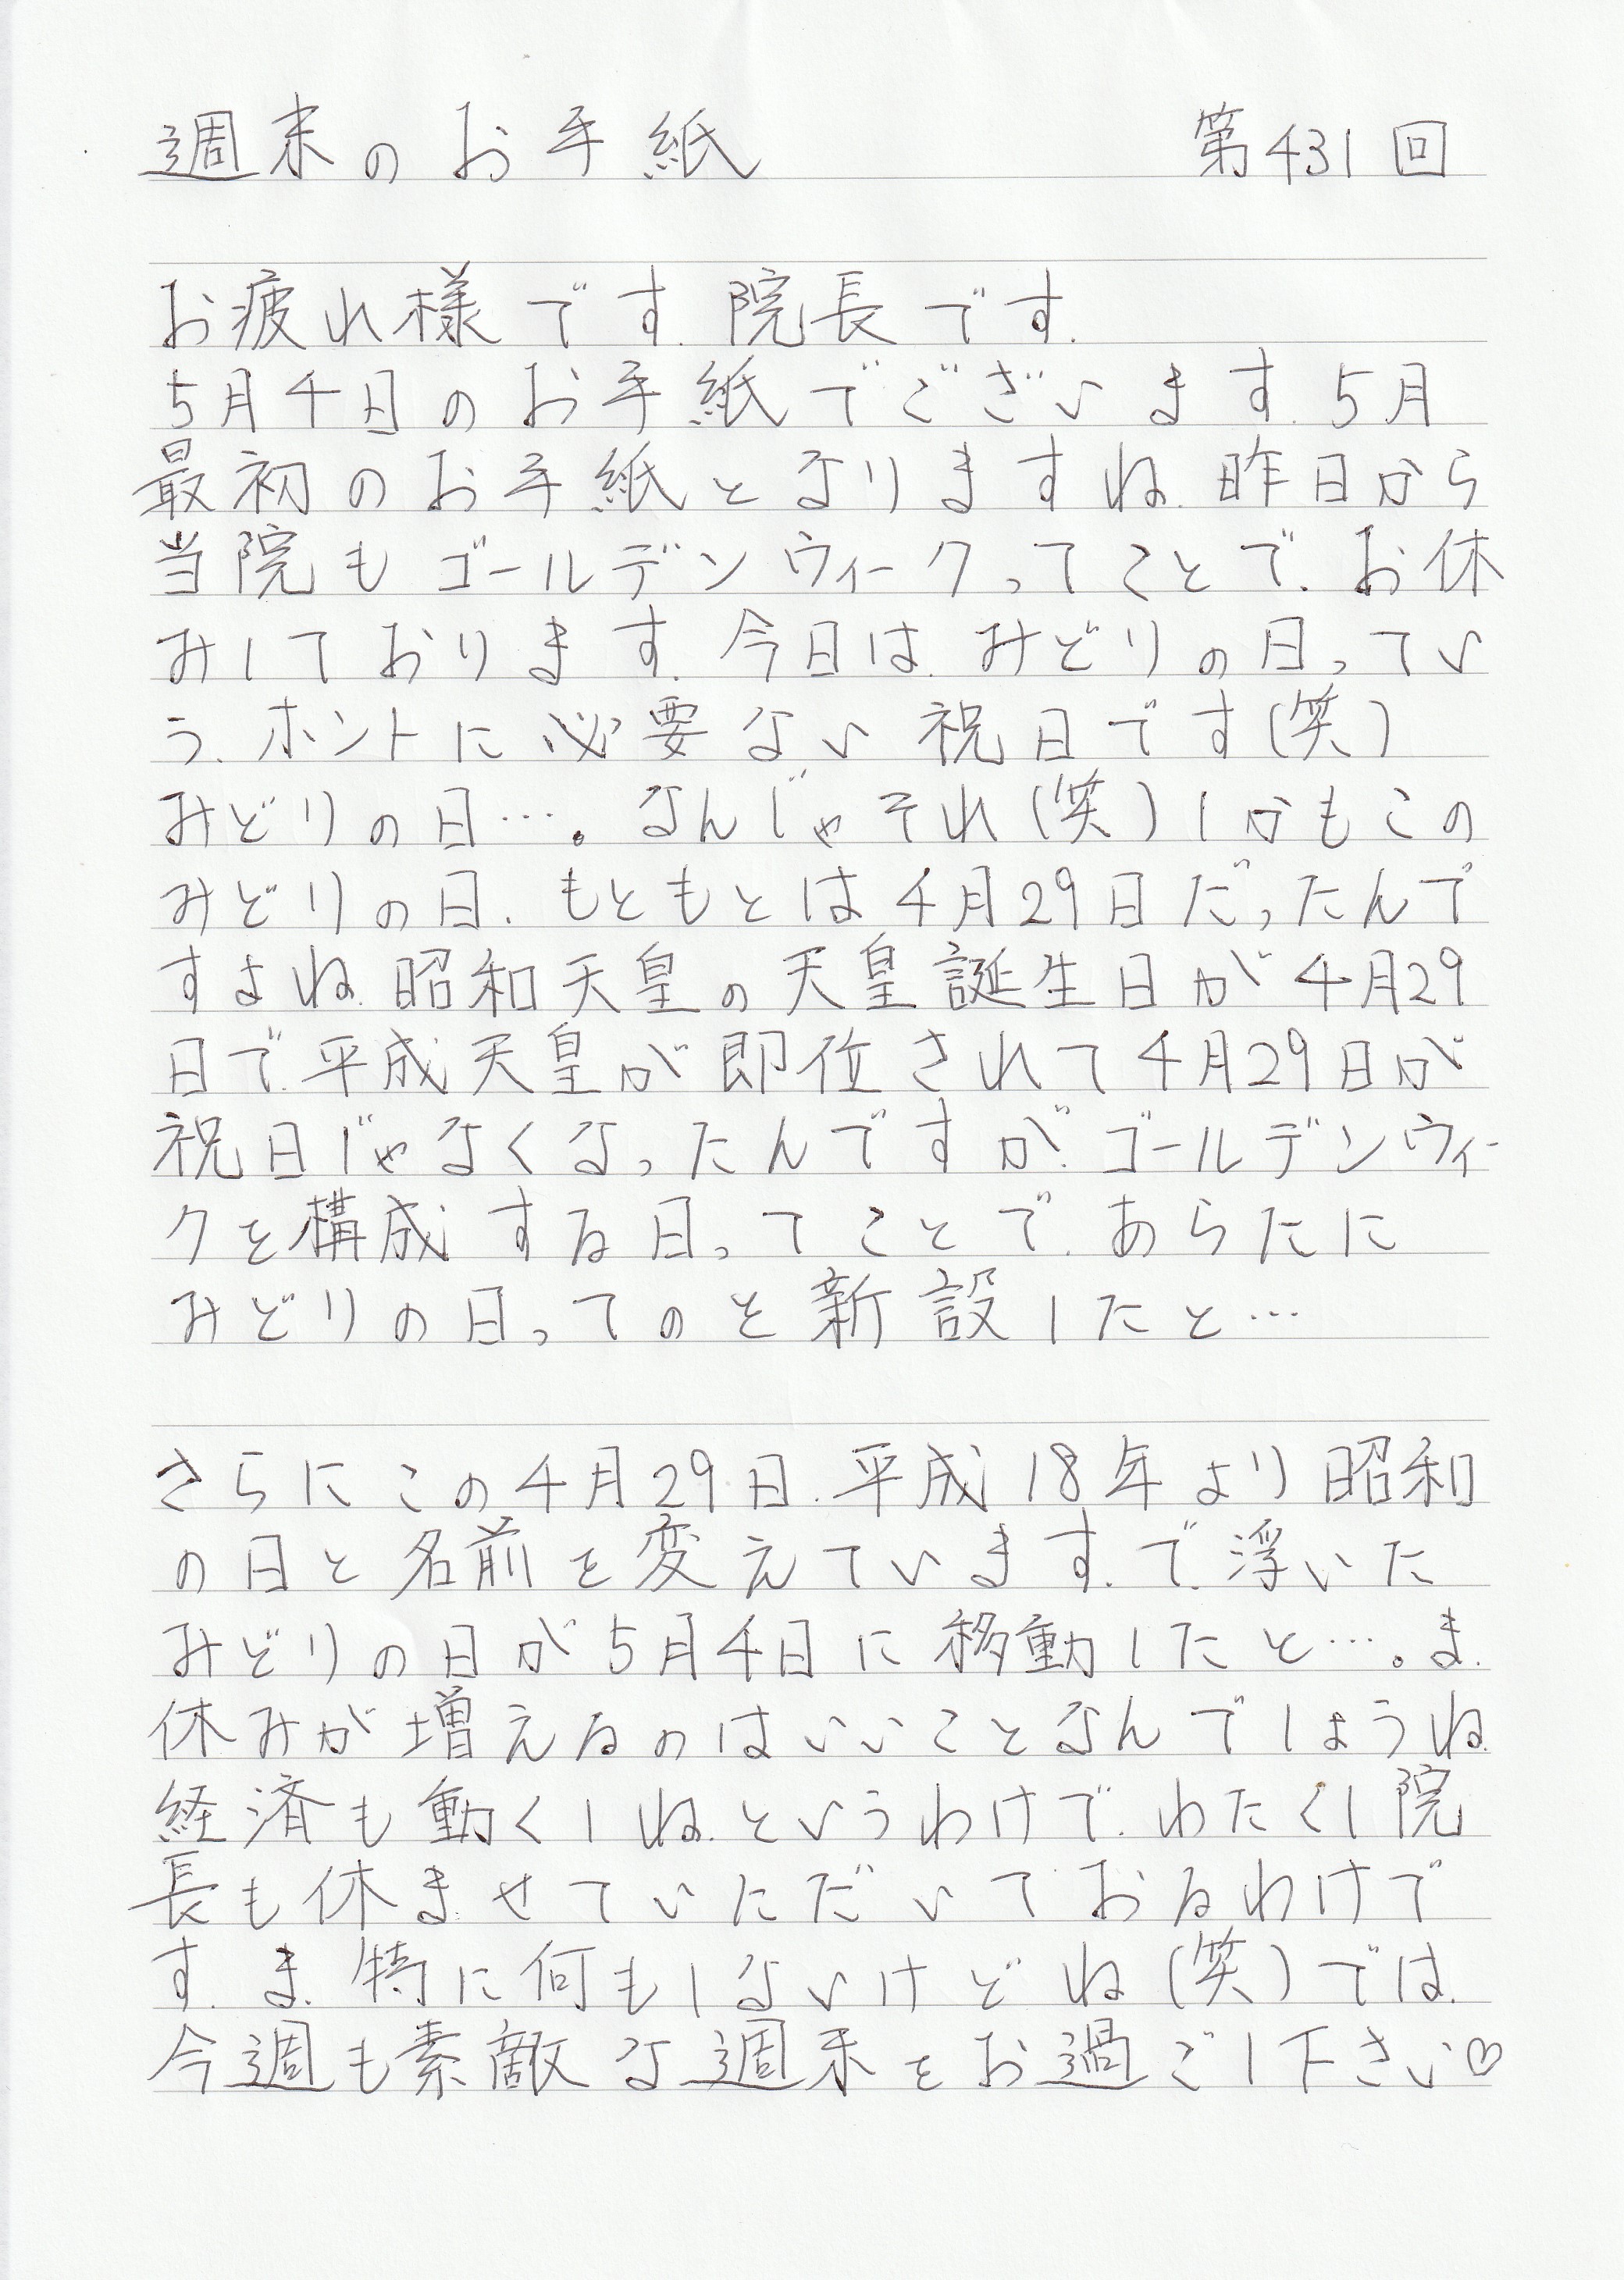 週末のお手紙 第431回
お疲れ様です.院長です.
5月4日のお手紙でございます.5月
最初のお手紙となりますね.昨日から
当院もゴールデンウィークってことで.お休
みしております.今日は.みどりの日ってい
う.ホントに必要ない祝日です(笑)
みどりの日…。なんじゃそれ(笑)しかもこの
みどりの日.もともとは4月29日だったんで
すよね.昭和天皇の天皇誕生日が4月29
日で.平成天皇が即位されて4月29日が
祝日じゃなくなったんですが.ゴールデンウィー
クを構成する日ってことで.あらたに
みどりの日ってのを新設したと…
さらにこの4月29日.平成18年より昭和
の日と名前を変えています.で.浮いた
みどりの日が5月4日に移動したと…。ま.
休みが増えるのはいいことなんでしょうね.
経済も動くしね.というわけで.わたくし院
長も休ませていただいておるわけで
す.ま.特に何もしないけどね(笑)では.
今週も素敵な週末をお過ごし下さい♡